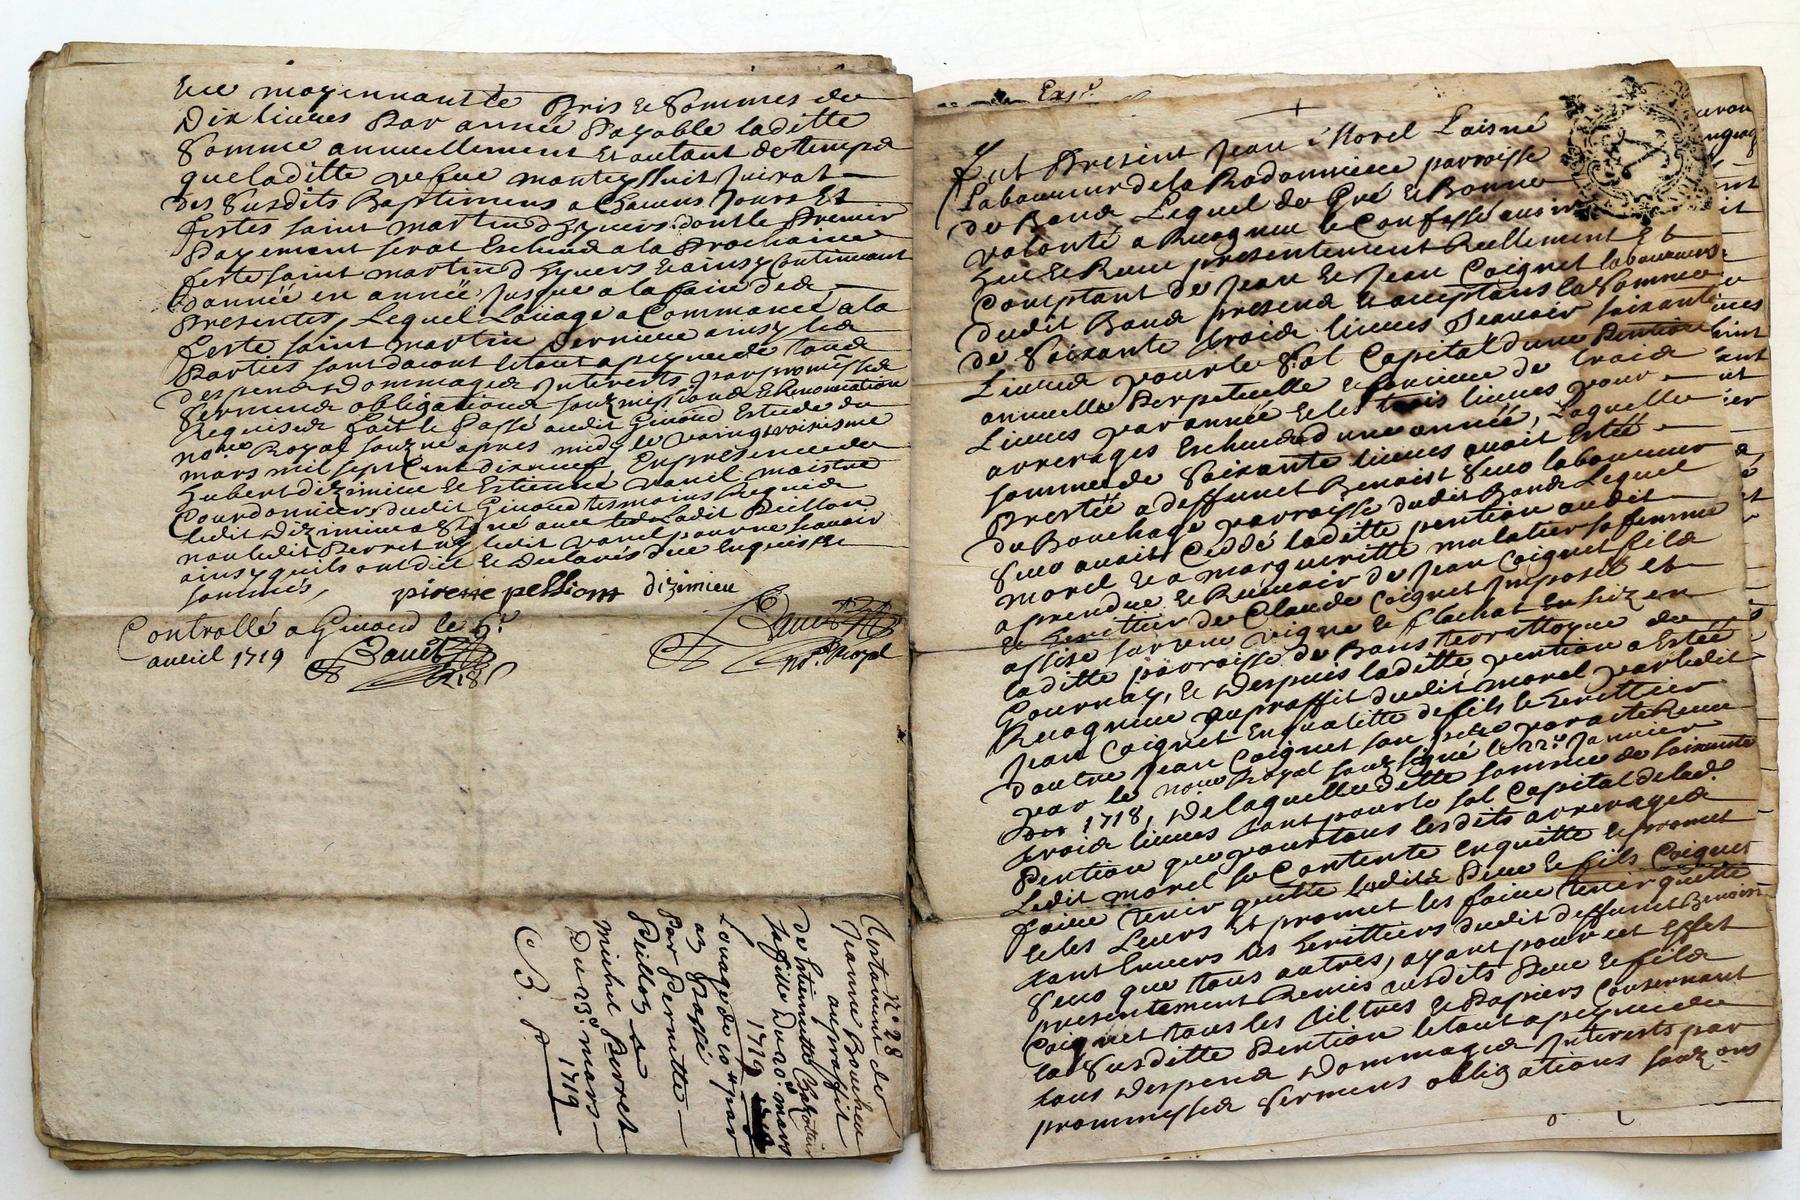 moyennant le Pris & Sommes de
Dix liures Par année Payable laditte
Somme annuellement et autant de temps
que laditte
des Susdits Baptimens a Chacuns Jours Et
festes saint martin d'hyuers dont le Premier
Payement serat Escheud a la Prochaine
feste saint martin d hyuers & ainsy Continuant
d'année en année Jusque a la fain des
Presentes, Lequel Louage a Commancé a la
feste saint martin Derniere ainsy les
Parties sont dacort le tout a peyne de tous
despens Dommages Interests par promesses
sermens obligations souzmissions & Renonciation
Requises fait & Passé audit Giuord Estude du
nore Royal souzné apres midy le vaingtroisieme
mars mil sept Cent dixneuf, En presence de
hubert dizimieu & Estienne vanel maistre
Courdonniers dudit Giuord tesmoins Requis
ledit dizimieu a Signé auec ledit Peillon
non ledit Perret ny ledit vanel pour ne sçauoir
ainsy quils ont dit & declarés de ce Enquis &
sommés,
pierre pellion dizimieu
Controllé a Giuord le 6e
aueril 1719
n.re Royal
n.° 28
Testament de
Jeanne
au proffit
de Estiennette
sa fille Du 20e mars
1719
Louage de 10 # par
an Passé
Par Pernette
Peillon a
michel Perret
Du 23e mars
1719
C. 3. s
Exp.é
Fut Present Jean Morel Laisné
Laboureur de la Rodonniere parroisse
de Bans Lequel de Gré & Bonne
volonté a Recogneu & Confessé auoir
heu & Receu presentement Reellement Et
Comptant de Jean & Jean Coignet laboureurs
dudit Bans presens & acceptans la Somme
de Soixante trois liures Scauoir soixante
Liures pour le Sol Capital d'une Pention
annuelle Perpetuelle & fonciere de trois
Liures par année & les trois liures pour
arrerages Escheus d'une année, Laquelle
somme de Soixante liures auait Estée
Prestée a deffunct Benoist Seue laboureur
du Bouchage parroisse dudit Bans Lequel
Seue auait Ceddé laditte pention audit
morel & a margueritte mulatier sa femme
a prendre & Receuoir de Jean Coignet fils
& heritier de Claude Coignet Imposée et
assize sur une vigne & flachat En sizen
laditte parroisse de Bans territtoyre de
Gournay, & despuis laditte pention a Estée
Recognue au proffit dudit morel par ledit
Jean Coignet En qualitté de fils & heritier
d'autre Jean Coignet son pere par acte Receu
par le nore Royal souzsigné le 22e Januier
1718, De laquelle ditte somme de soixante
trois liures tant pour le sol Capital de lad.
Pention que pour tous lesdits arrerages
Ledit morel se Contente En quitte & promet
faire tenir quitte lesdits Pere & fils Coignet
& les Leurs Et promet les faire tenir quitte
tant Enuers les heritiers dudit deffunct Benoist
Seue que tous autres, ayant pour cet Effet
presentement Remis ausdits Pere & fils
Coignet tous les tiltres & Papiers Consernant
la Susditte Pention le tout a peyne de
tous despens Dommages Interests par
prommesses Sermens obligations souz